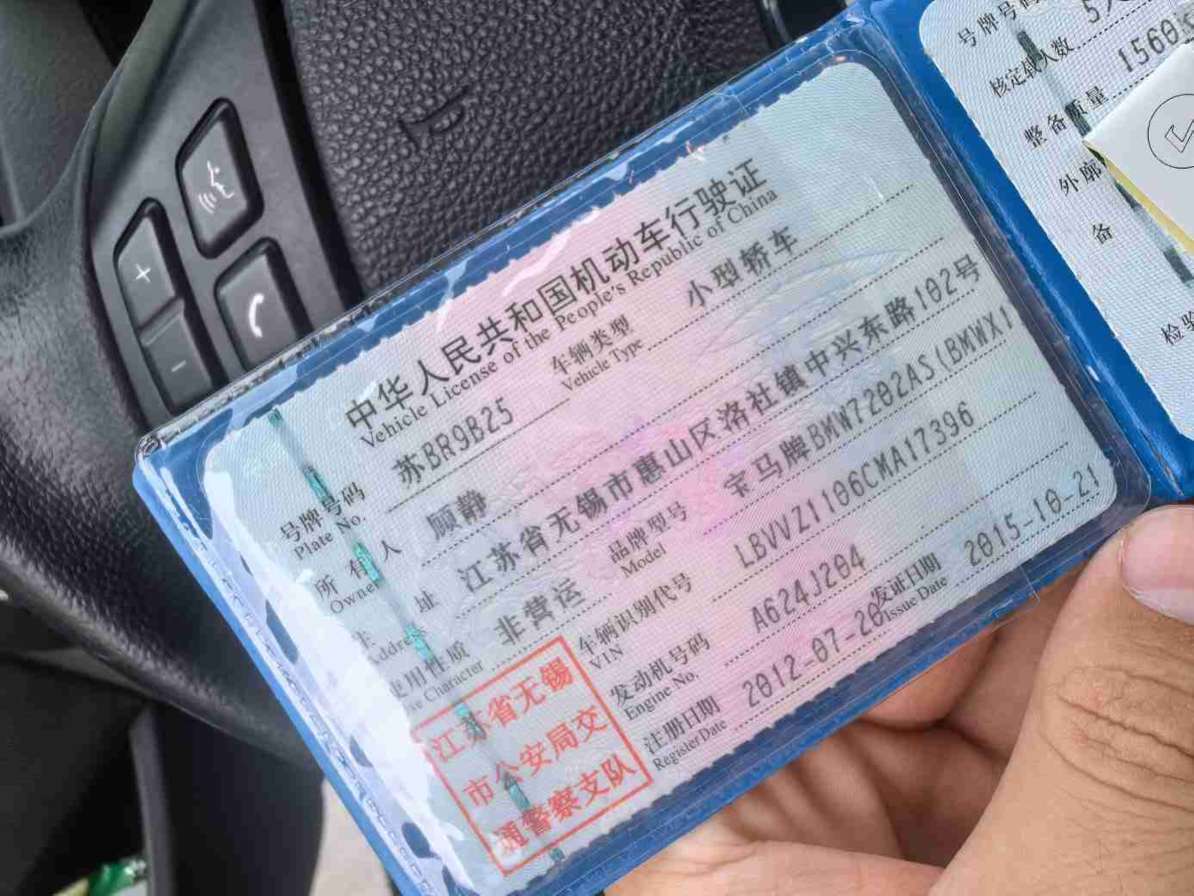 中华人民共和国机动车行驶证
Vehicle License of the People's Republic of China
号牌号码 苏BR9B25 车辆类型 小型轿车
Plate No. Vehicle Type
所有人 顾静
Owner
住址 江苏省无锡市惠山区洛社镇中兴东路102号
Address
使用性质 非营运 品牌型号 宝马牌BMW7202AS(BMWX1
Use Character Model
车辆识别代号 LBVVZ1106CMA17396
VIN
发动机号码 A624J204
Engine No.
注册日期 2012-07-20 发证日期 2015-10-21
Register Date Issue Date
江苏省无锡
市公安局交
通警察支队
号牌号码
核定载人数 5人
整备质量 1560
外廓
备
检验